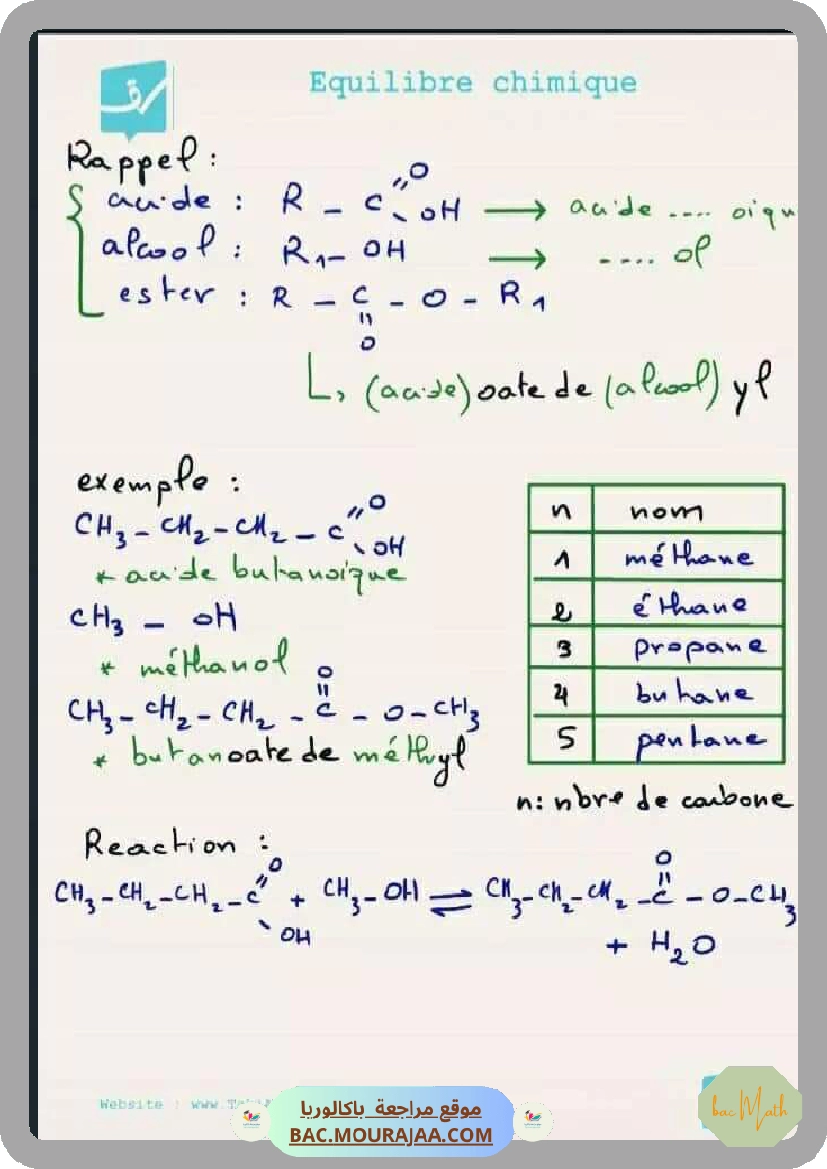 Equilibre chimique
Rappel :
acide : R - C =O - OH → acide .... oiqu
alcool : R1- OH → .... ol
ester : R - C - O - R1
=
O
↳ (acide)oate de (alcool)yl
exemple :
CH3 - CH2 - CH2 - C =O - OH
* acide butanoïque
CH3 - OH
* méthanol
O
=
CH3 - CH2 - CH2 - C - O - CH3
* butanoate de méthyl
n nom
1 méthane
2 éthane
3 propane
4 butane
5 pentane
n: nbre de carbone
Reaction :
CH3 - CH2 - CH2 - C =O - OH + CH3 - OH ⇌ CH3 - CH2 - CH2 - C =O - O - CH3
+ H2O
Website : www.
موقع مراجعة باكالوريا
BAC.MOURAJAA.COM
bac Math